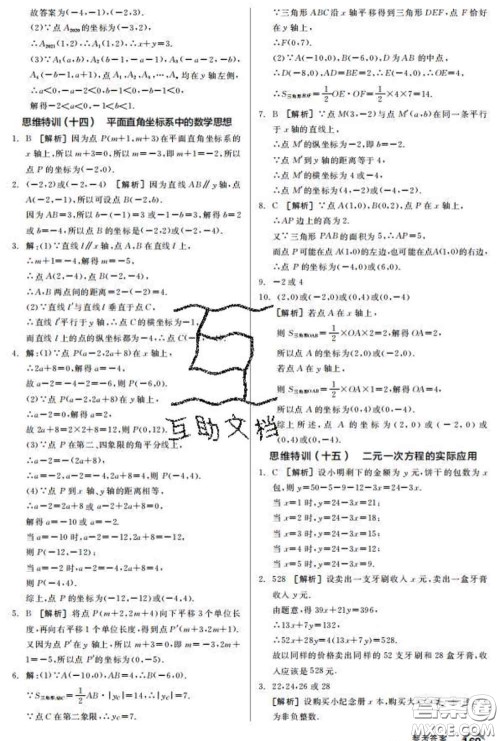 故答案为(-4,-1),(-2,3).
(2)∵点A₂₀₂₀的坐标为(-3,-2),
∴A₂₀₂₁(1,2),∴A₁(1,2),∴x+y=3.
(3)∵A₁(a,b),A₂(b-1,-a-1),A₃(-a-2,-b),
A₄(-b-1,a+1),点A₁,A₂,A₃,…均在y轴左侧,
∴a<0,-a-2<0,b-1<0,-b-1<0,
解得-2<a<0,-1<b<1.
思维特训(十四) 平面直角坐标系中的数学思想
1. B [解析]因为点P(m+1,m+3)在平面直角坐标系的
x轴上,所以m+3=0,所以m=-3,所以m+1=-2,所以
点P的坐标为(-2,0).
2. (-2,2)或(-2,-4) [解析]因为直线AB∥y轴,点
A(-2,-1),所以可设点B(-2,b).
因为AB=3,所以|-b-1|=3,解得b=2或
b=-4,所以点B的坐标是(-2,2)或(-2,-4).
3. 解:(1)∵直线l∥x轴,点A,B在直线l上,
∴m+1=-4,∴m=-5,
∴点A(-2,-4),点B(-4,-4),
∴A,B两点间的距离=-2-(-4)=2.
(2)∵直线l′与直线l垂直于点C,
∴直线l′平行于y轴,∴点C的横坐标为-1.
而直线l上的点的纵坐标都为-4,∴C(-1,-4).
4. 解:(1)∵点P(a-2,2a+8)在x轴上,
∴2a+8=0,解得a=-4.
故a-2=-4-2=-6,则P(-6,0).
(2)∵点P(a-2,2a+8)在y轴上,
∴a-2=0,解得a=2,
故2a+8=2×2+8=12,则P(0,12).
(3)∵点P在第二、四象限的角平分线上,
∴a-2=-(2a+8),解得a=-2,
∴a-2=-2-2=-4,则P(-4,4).
(4)∵点P到x轴、y轴的距离相等,
∴a-2=2a+8或a-2+2a+8=0,
解得a=-10或a=-2.
当a=-10时,a-2=-12,2a+8=-12,
则P(-12,-12);
当a=-2时,a-2=-4,2a+8=4,
则P(-4,4).
综上,点P的坐标为(-12,-12)或(-4,4).
5. B [解析]将点P(m+2,2m+4)向下平移3个单位长
度,再向右平移1个单位长度,得到点P′(m+3,2m+1).
又因为点P′在y轴上,所以m+3=0,即m=-3,2m+
1=-5,所以点P′的坐标为(0,-5).
6. 解:(1)∵A(-10,0),AB=4,∴B(-6,0).
∵S三角形ABC=½AB·|yC|=14,∴|yC|=7.
∵点C在第二象限,∴
∵三角形ABC沿x轴平移得到三角形DEF,点F恰好
在y轴上,
∴F(0,7).
(2)∵A(-10,0),B(-6,0),D为AB的中点,
∴D(-8,0),AD=BE=2,∴E(-4,0),
∴S三角形EOF=½OE·OF=½×4×7=14.
∴点M′的纵坐标为b=-2.
∵点M′到y轴的距离等于4,
8. C [解析]∵点A(1,0),B(0,2),点P在x轴上,
∴AP边上的高为2.
又∵三角形PAB的面积为5,∴AP=5.
而点P可能在点A(1,0)的左边,也可能在点A(1,0)的右边,
∴点P的坐标为(-4,0)或(6,0).
9. -2或4
10. (2,0)或(-2,0)或(0,4)或(0,-4)
[解析]若点A在x轴上,
则S三角形OAB=½×OA×2=2,解得OA=2,
所以点A的坐标为(2,0)或(-2,0).
若点A在y轴上,
则S三角形OAB=½×OA×1=2,解得OA=4,
所以点A的坐标为(0,4)或(0,-4).
综上所述,点A的坐标为(2,0)或(-2,0)或(0,4)或
(0,-4).
思维特训(十五) 二元一次方程的实际应用
1. C [解析]设小明剩下的金额为y元,饼干的包数为x
包,则y=50-5-9-12-3x=24-3x.
当x=1时,y=24-3x=21;
当x=2时,y=24-3x=18;
当x=3时,y=24-3x=15;
当x=4时,y=24-3x=12;
当x=5时,y=24-3x=9.
2. 528 [解析]设卖出一支牙刷收入x元,卖出一盒牙膏
收入y元.
由题意,得39x+21y=396,
∴13x+7y=132,
∴52x+28y=4(13x+7y)=528.
故以同样的价格卖出同样的52支牙刷和28盒牙膏,收
入应该是528元.
3. 22,24,26或28
为非负整数.
互助文档